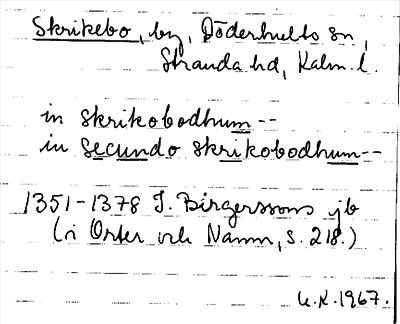 Skrikebo, by, Döderhults sn,
Stranda hd, Kalm. l.
in skrikobodhum --
in secundo skrikobodhum --
1351-1378 J. Birgerssons jb
(i Orter och Namn, s. 218.)
U.K. 1967.